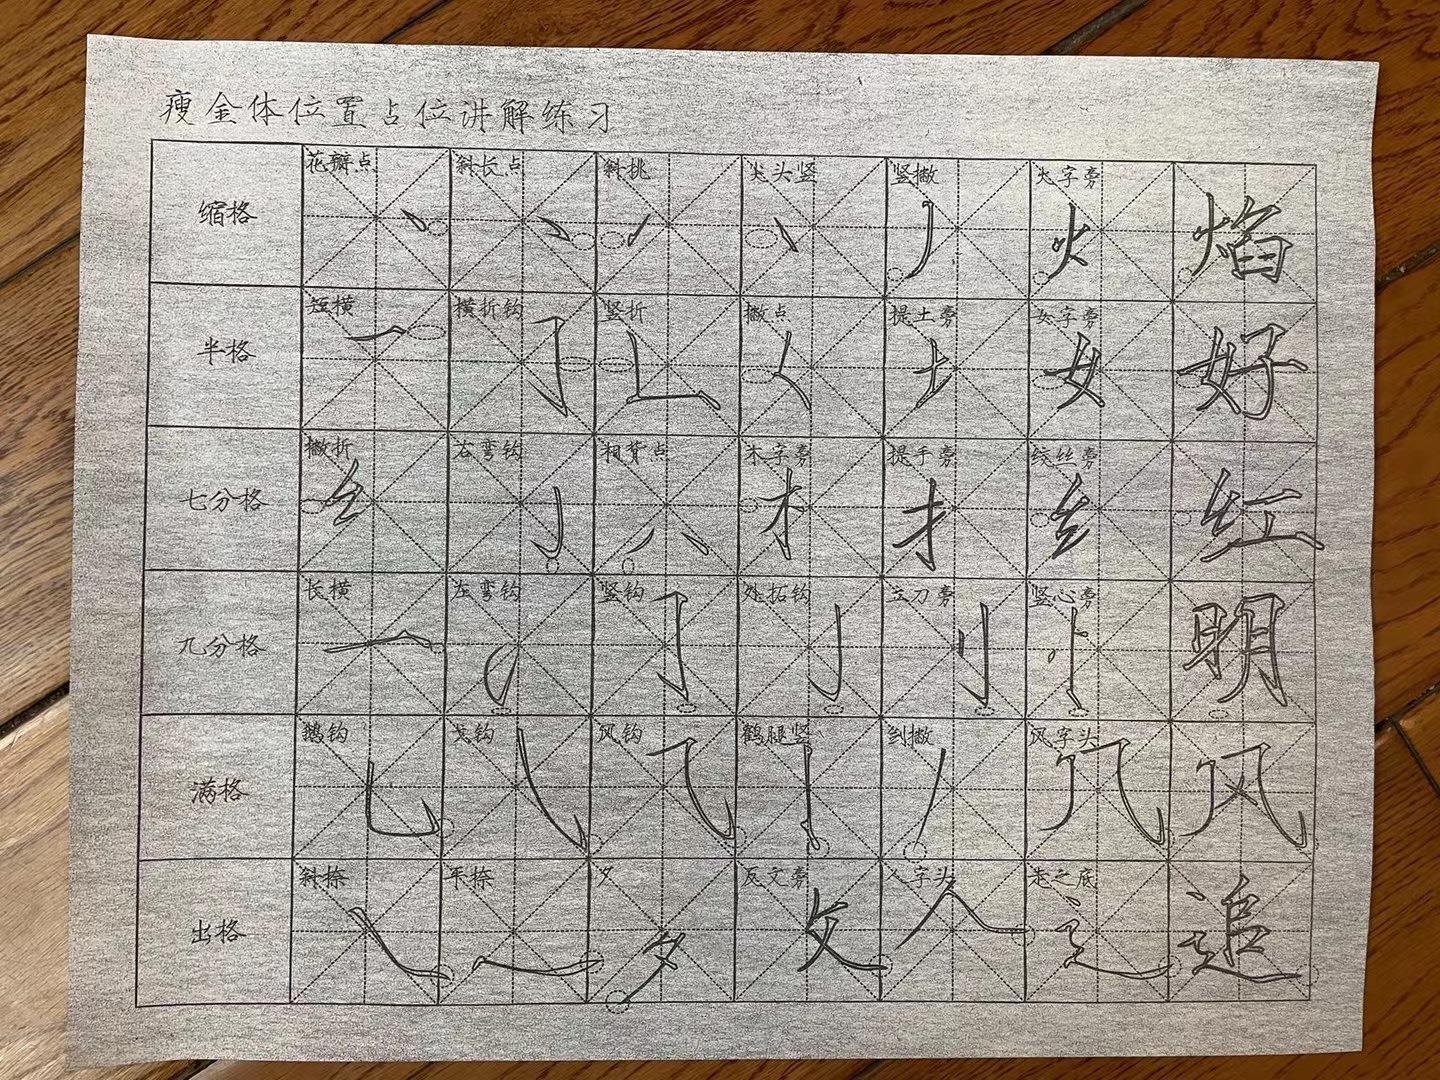 瘦金体位置占位讲解练习
缩格 花瓣点 斜长点 斜挑 尖头竖 竖撇 火字旁 火 焰
半格 短横 横折钩 竖折 撇点 提土旁 女字旁 女 好
七分格 撇折 右弯钩 相背点 木字旁 提手旁 绞丝旁 红
九分格 长横 左弯钩 竖钩 外拓钩 立刀旁 竖心旁 明
满格 鹅钩 戈钩 风钩 鹤腿竖 剑撇 风字头 风
出格 斜捺 平捺 夕 夕 反文旁 攵 人字头 人 走之底 辶 追